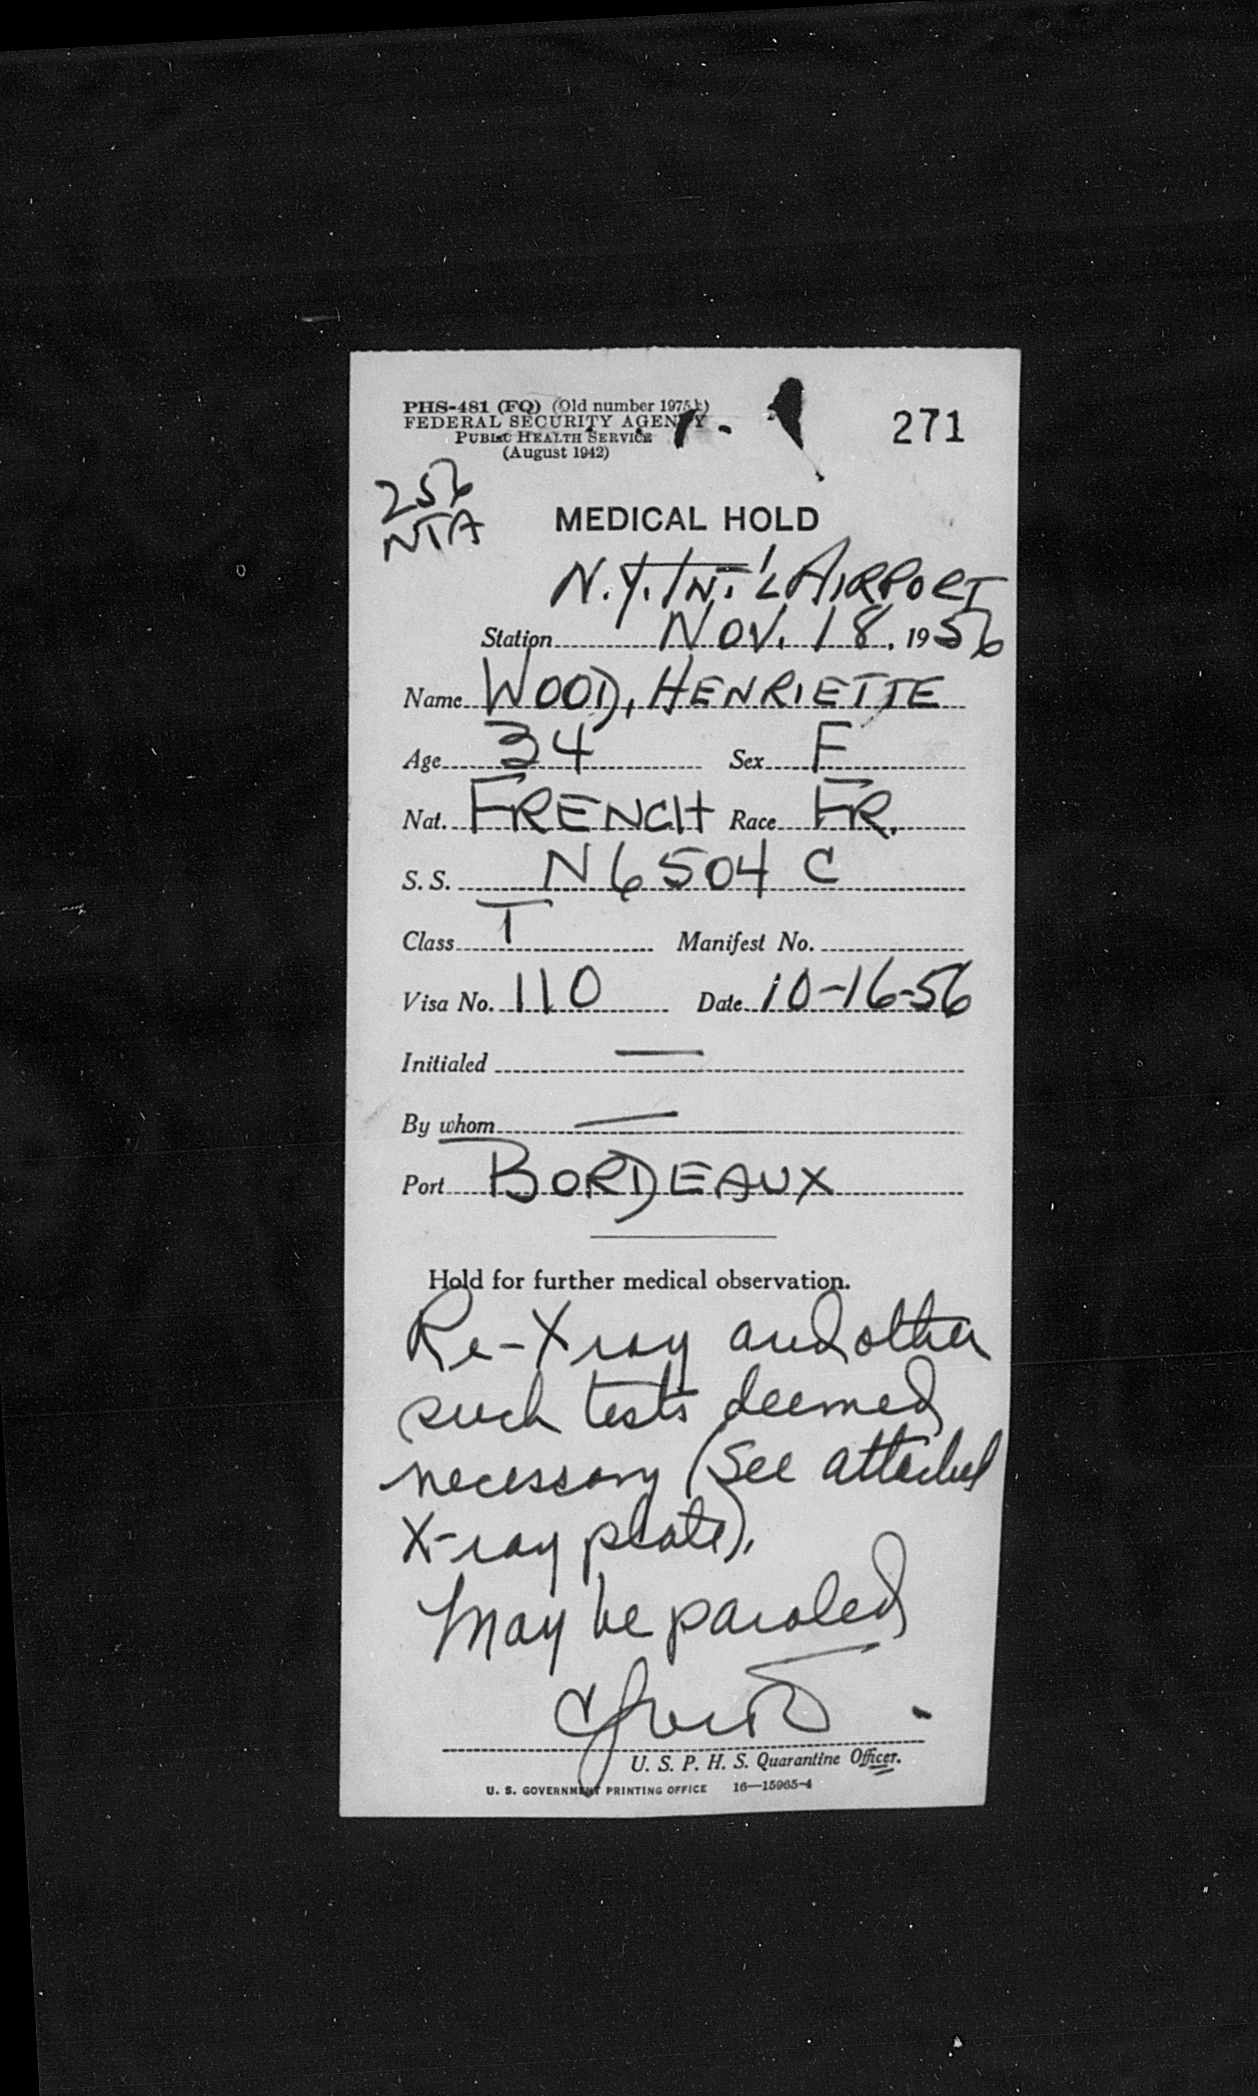 PHS-481 (FQ) (Old number 1975k)
FEDERAL SECURITY AGENCY
PUBLIC HEALTH SERVICE
(August 1942)
271
256
NTA
MEDICAL HOLD
N.Y. INT'L AIRPORT
Station NOV. 18, 1956
Name WOOD, HENRIETTE
Age 34 Sex F
Nat. FRENCH Race FR.
S. S. N6504 C
Class T Manifest No.
Visa No. 110 Date 10-16-56
Initialed —
By whom —
Port BORDEAUX
Hold for further medical observation.
Re-Xray and other
such tests deemed
necessary (See attached
X-ray plate).
May be paroled
U. S. P. H. S. Quarantine Officer.
U. S. GOVERNMENT PRINTING OFFICE 16—15965-4